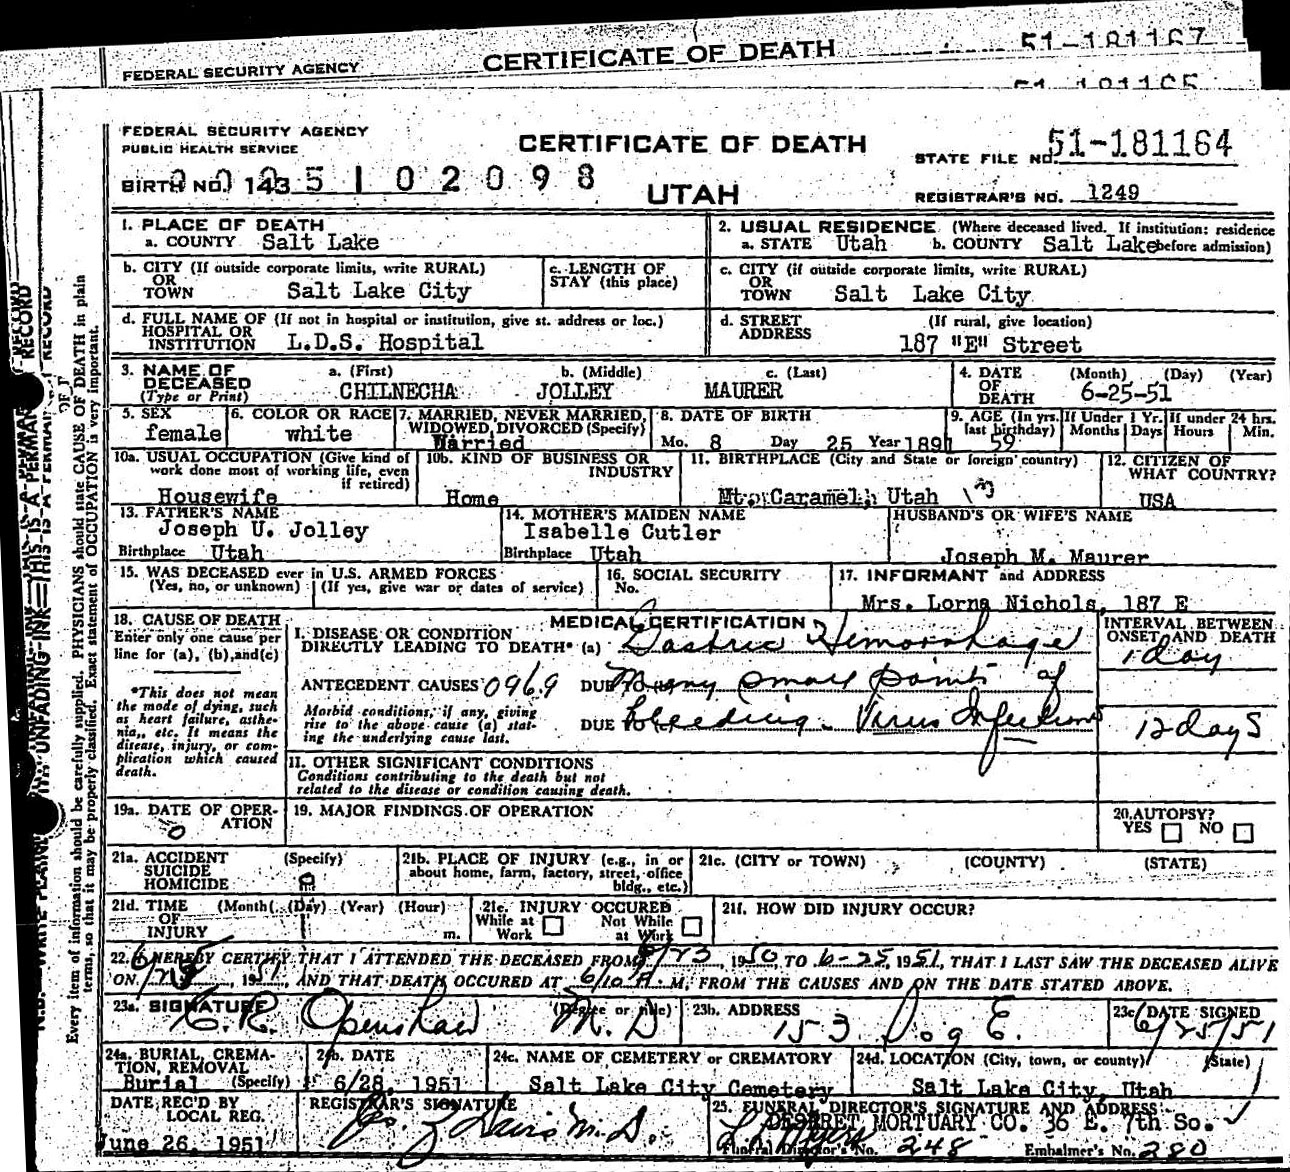 FEDERAL SECURITY AGENCY CERTIFICATE OF DEATH 51-181167
51-181165
FEDERAL SECURITY AGENCY
PUBLIC HEALTH SERVICE
CERTIFICATE OF DEATH
STATE FILE NO. 51-181164
BIRTH NO. 143 5102098
UTAH
REGISTRAR'S NO. 1249
1. PLACE OF DEATH
a. COUNTY Salt Lake
2. USUAL RESIDENCE (Where deceased lived. If institution: residence
a. STATE Utah b. COUNTY Salt Lake before admission)
b. CITY (If outside corporate limits, write RURAL)
OR
TOWN Salt Lake City
c. LENGTH OF
STAY (this place)
c. CITY (if outside corporate limits, write RURAL)
OR
TOWN Salt Lake City
d. FULL NAME OF (If not in hospital or institution, give st. address or loc.)
HOSPITAL OR
INSTITUTION L.D.S. Hospital
d. STREET (If rural, give location)
ADDRESS
187 "E" Street
3. NAME OF
DECEASED
(Type or Print)
a. (First) b. (Middle) c. (Last)
CHILNECHA JOLLEY MAURER
4. DATE
OF
DEATH
(Month) (Day) (Year)
6-25-51
5. SEX
female
6. COLOR OR RACE
white
7. MARRIED, NEVER MARRIED,
WIDOWED, DIVORCED (Specify)
Married
8. DATE OF BIRTH
Mo. 8 Day 25 Year 1891
9. AGE (In yrs.
last birthday)
59
If Under 1 Yr.
Months Days
If under 24 hrs.
Hours Min.
10a. USUAL OCCUPATION (Give kind of
work done most of working life, even
if retired)
Housewife
10b. KIND OF BUSINESS OR
INDUSTRY
Home
11. BIRTHPLACE (City and State or foreign country)
Mt. Caramel, Utah
12. CITIZEN OF
WHAT COUNTRY?
USA
13. FATHER'S NAME
Joseph U. Jolley
Birthplace Utah
14. MOTHER'S MAIDEN NAME
Isabelle Cutler
Birthplace Utah
HUSBAND'S OR WIFE'S NAME
Joseph M. Maurer
15. WAS DECEASED ever in U.S. ARMED FORCES
(Yes, no, or unknown) (If yes, give war or dates of service)
16. SOCIAL SECURITY
No.
17. INFORMANT and ADDRESS
Mrs. Lorna Nichols, 187 E
18. CAUSE OF DEATH
Enter only one cause per
line for (a), (b), and (c)
*This does not mean
the mode of dying, such
as heart failure, asthe-
nia, etc. It means the
disease, injury, or com-
plication which caused
death.
MEDICAL CERTIFICATION
I. DISEASE OR CONDITION
DIRECTLY LEADING TO DEATH* (a) Gastric Hemorrhage
ANTECEDENT CAUSES 096.9 DUE TO (b) Many small points of
Morbid conditions, if any, giving
rise to the above cause (a) stat-
ing the underlying cause last.
DUE TO (c) bleeding - Virus Infections
INTERVAL BETWEEN
ONSET AND DEATH
1 day
12 days
II. OTHER SIGNIFICANT CONDITIONS
Conditions contributing to the death but not
related to the disease or condition causing death.
19a. DATE OF OPER-
ATION
0
19. MAJOR FINDINGS OF OPERATION
20. AUTOPSY?
YES NO
21a. ACCIDENT (Specify)
SUICIDE
HOMICIDE
0
21b. PLACE OF INJURY (e.g., in or
about home, farm, factory, street, office
bldg., etc.)
21c. (CITY or TOWN) (COUNTY) (STATE)
21d. TIME (Month) (Day) (Year) (Hour)
OF
INJURY m.
21e. INJURY OCCURED
While at Not While
Work at Work
21f. HOW DID INJURY OCCUR?
22. I HEREBY CERTIFY THAT I ATTENDED THE DECEASED FROM 8/23, 1950 TO 6-25, 1951, THAT I LAST SAW THE DECEASED ALIVE
ON 6/25, 1951, AND THAT DEATH OCCURED AT 6/10 A. M, FROM THE CAUSES AND ON THE DATE STATED ABOVE.
23a. SIGNATURE (Degree or title)
C. R. Openshaw M.D
23b. ADDRESS
153 E.
23c. DATE SIGNED
6/25/51
24a. BURIAL, CREMA-
TION, REMOVAL
Burial (Specify)
24b. DATE
6/28, 1951
24c. NAME OF CEMETERY or CREMATORY
Salt Lake City Cemetery
24d. LOCATION (City, town, or county) (State)
Salt Lake City, Utah
DATE REC'D BY
LOCAL REG.
June 26, 1951
REGISTRAR'S SIGNATURE
M.D.
25. FUNERAL DIRECTOR'S SIGNATURE AND ADDRESS
DESERET MORTUARY CO. 36 E. 7th So.
Funeral Director's No. 248 Embalmer's No. 280
Every item of information should be carefully supplied. PHYSICIANS should state CAUSE OF DEATH in plain
terms, so that it may be properly classified. Exact statement of OCCUPATION is very important.